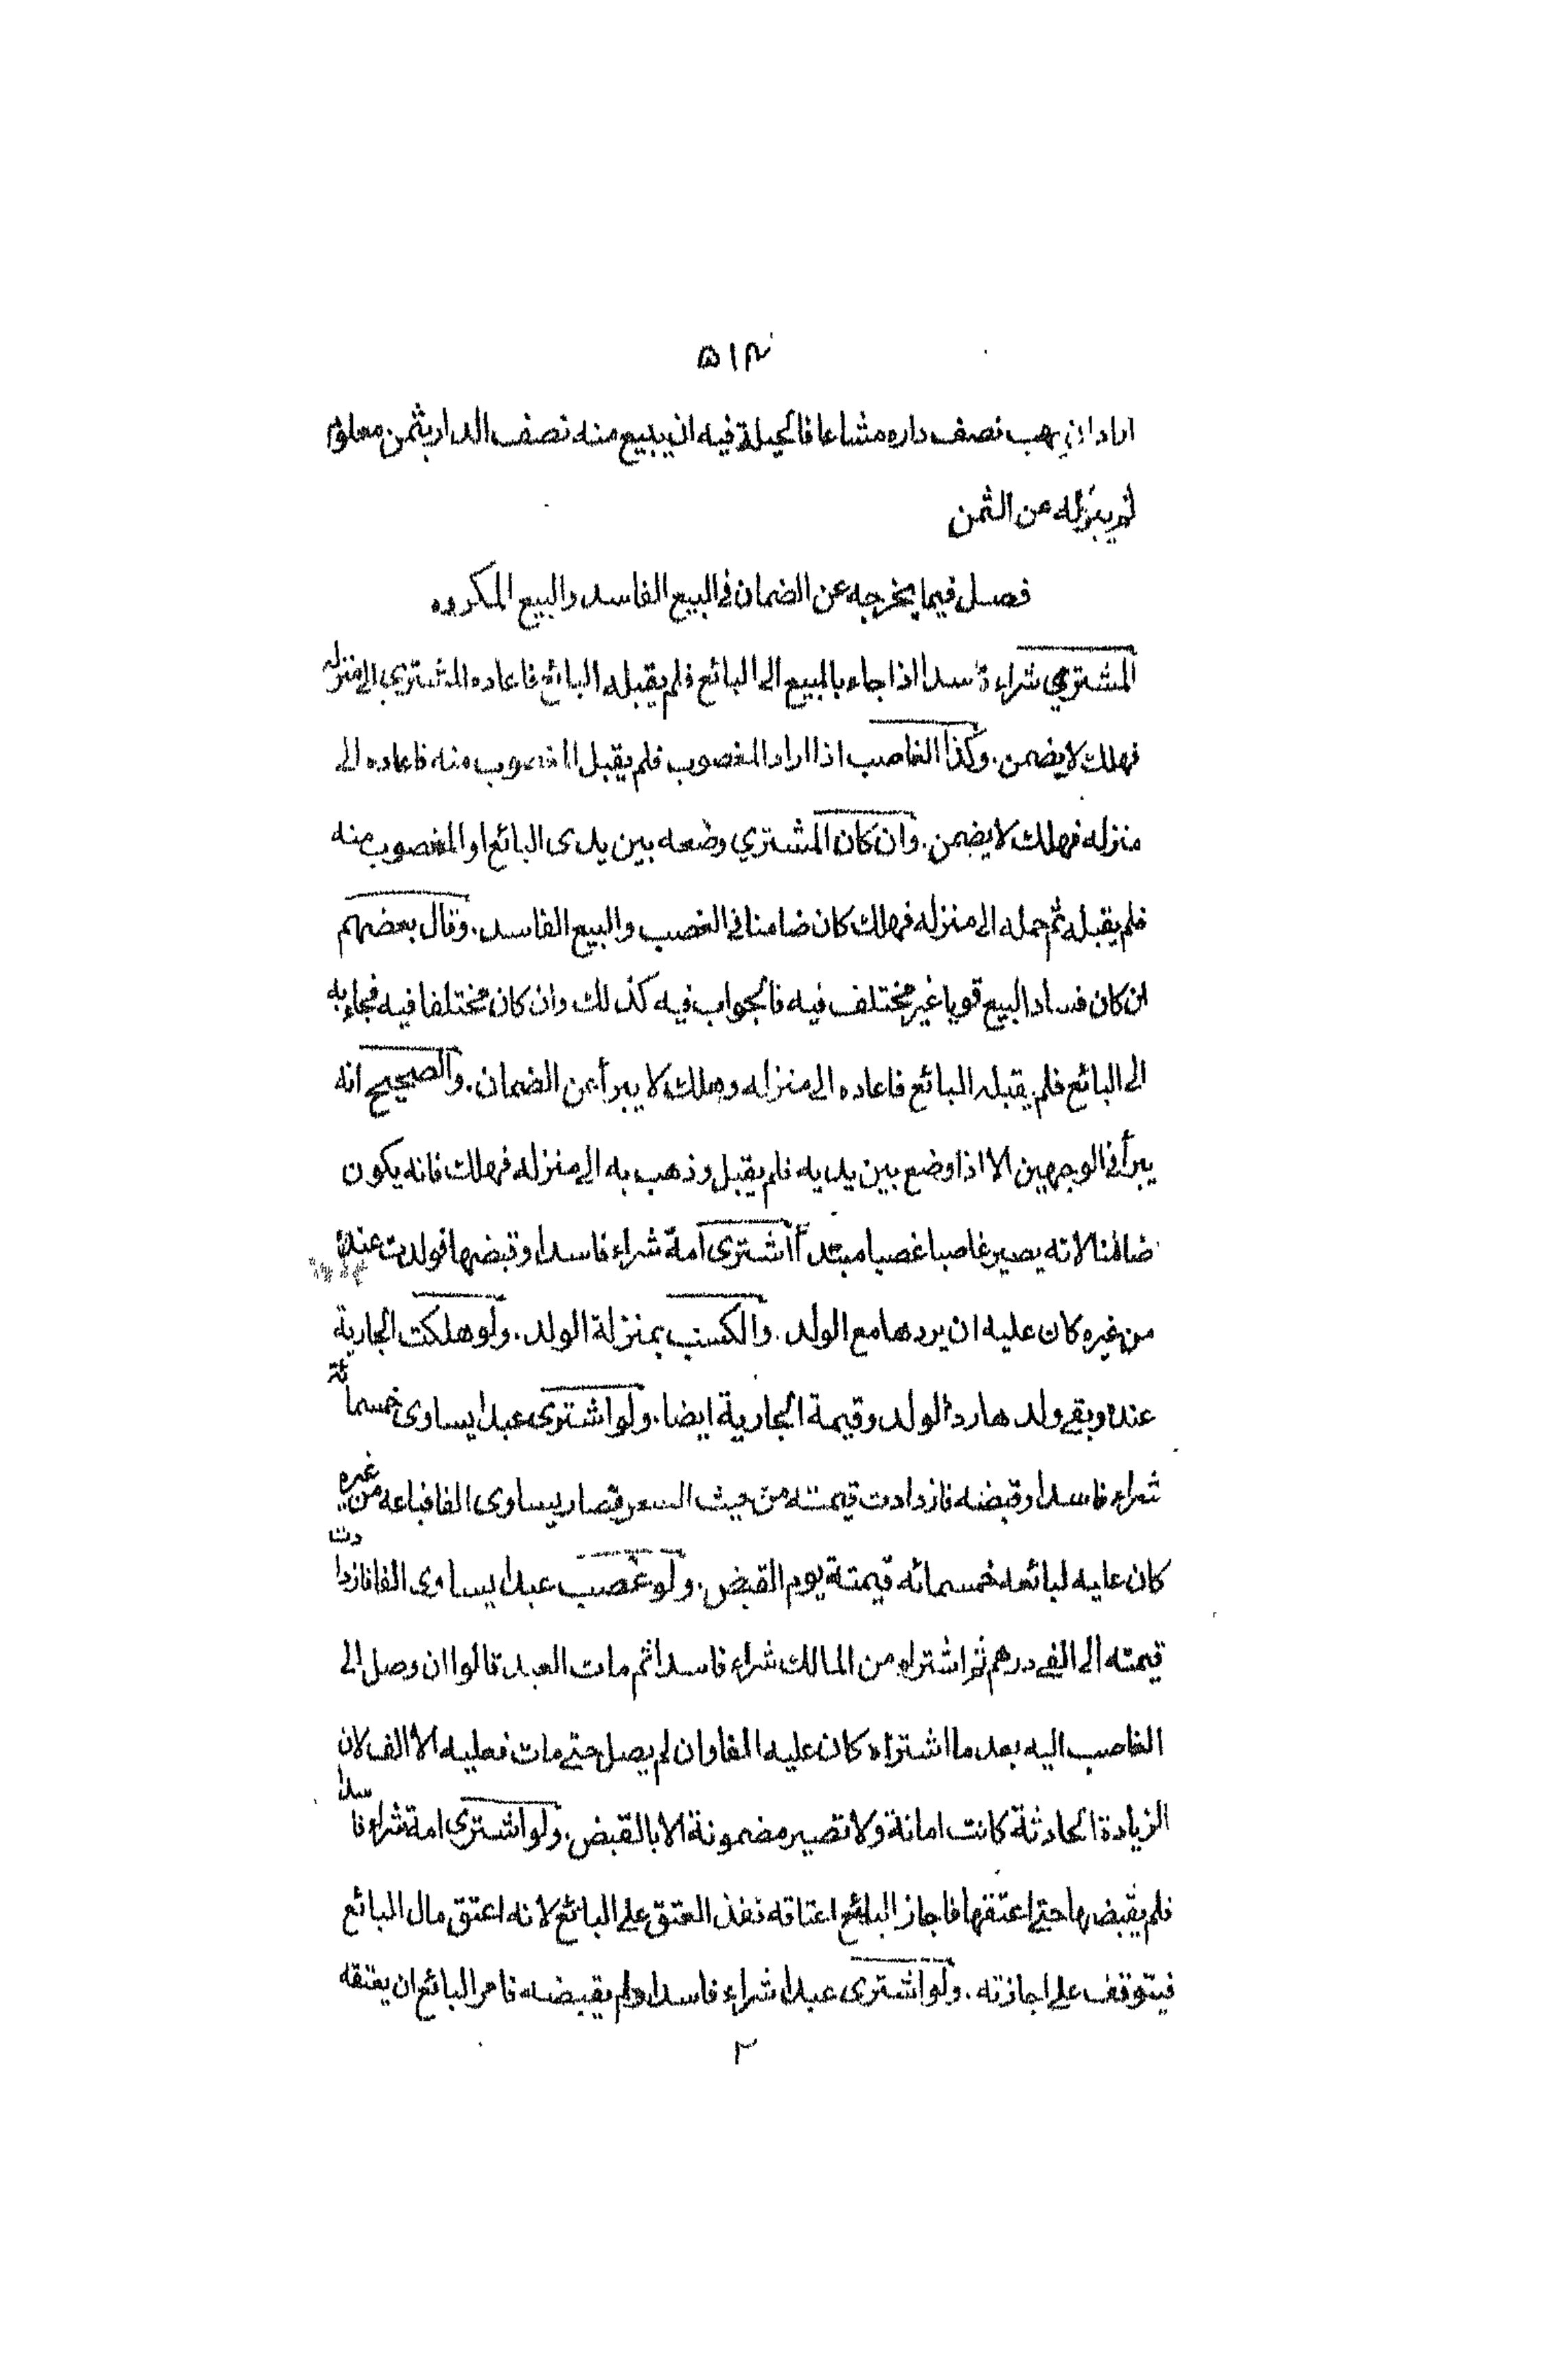 ۵۱۴
اراد ان يهب نصف داره مشاعا فالحيلة فيه ان يبيع منه نصف الدار بثمن معلوم
ثم يبرئه عن الثمن
فصل فيما يخرجه عن الضمان في البيع الفاسد والبيع المكروه
المشتري شراء فاسدا اذا جاء بالمبيع الى البائع فلم يقبله البائع فاعاده المشتري الى منزله
فهلك لا يضمن. وكذا الغاصب اذا اراد المغصوب فلم يقبل المغصوب منه فاعاده الى
منزله فهلك لا يضمن. وان كان المشتري وضعه بين يدى البائع او المغصوب منه
فلم يقبله ثم حمله الى منزله فهلك كان ضامنا في الغصب والبيع الفاسد. وقال بعضهم
ان كان فساد البيع قويا غير مختلف فيه فالجواب فيه كذلك وان كان مختلفا فيه فجاء به
الى البائع فلم يقبله البائع فاعاده الى منزله وهلك لا يبرأ عن الضمان. والصحيح انه
يبرأ في الوجهين الا اذا وضع بين يديه فلم يقبل وذهب به الى منزله فهلك فانه يكون
ضامنا لانه يصير غاصبا غصبا مبتدأ اشترى امة شراء فاسدا وقبضها فولدت عنده
من غيره كان عليه ان يردها مع الولد. والكسب بمنزلة الولد. ولو هلكت الجارية
عنده وبقي ولدها رد الولد وقيمة الجارية ايضا. ولو اشترى عبدا يساوى خمسمائة
شراء فاسدا وقبضه فازدادت قيمته من حيث السعر فصار يساوى الفا فباعه من غيره
كان عليه لبائعه خمسمائه قيمتة يوم القبض. ولو غصب عبدا يساوى الفا فازدادت
قيمته الى الفي درهم ثم اشتراه من المالك شراء فاسدا ثم مات العبد قالوا ان وصل الى
الغاصب اليه بعد ما اشتراه كان عليه الفاوان لم يصل حتى مات فعليه الا الف لان
الزيادة الحادثة كانت امانة ولا تصير مضمونة الا بالقبض. ولو اشترى امة شراء فاسدا
فلم يقبضها حتى اعتقها فاجاز البائع اعتاقه نفذ العتق على البائع لانه اعتق مال البائع
فيتوقف على اجازته. ولو اشترى عبدا شراء فاسدا ولم يقبضه فامر البائع ان يعتقه
٢